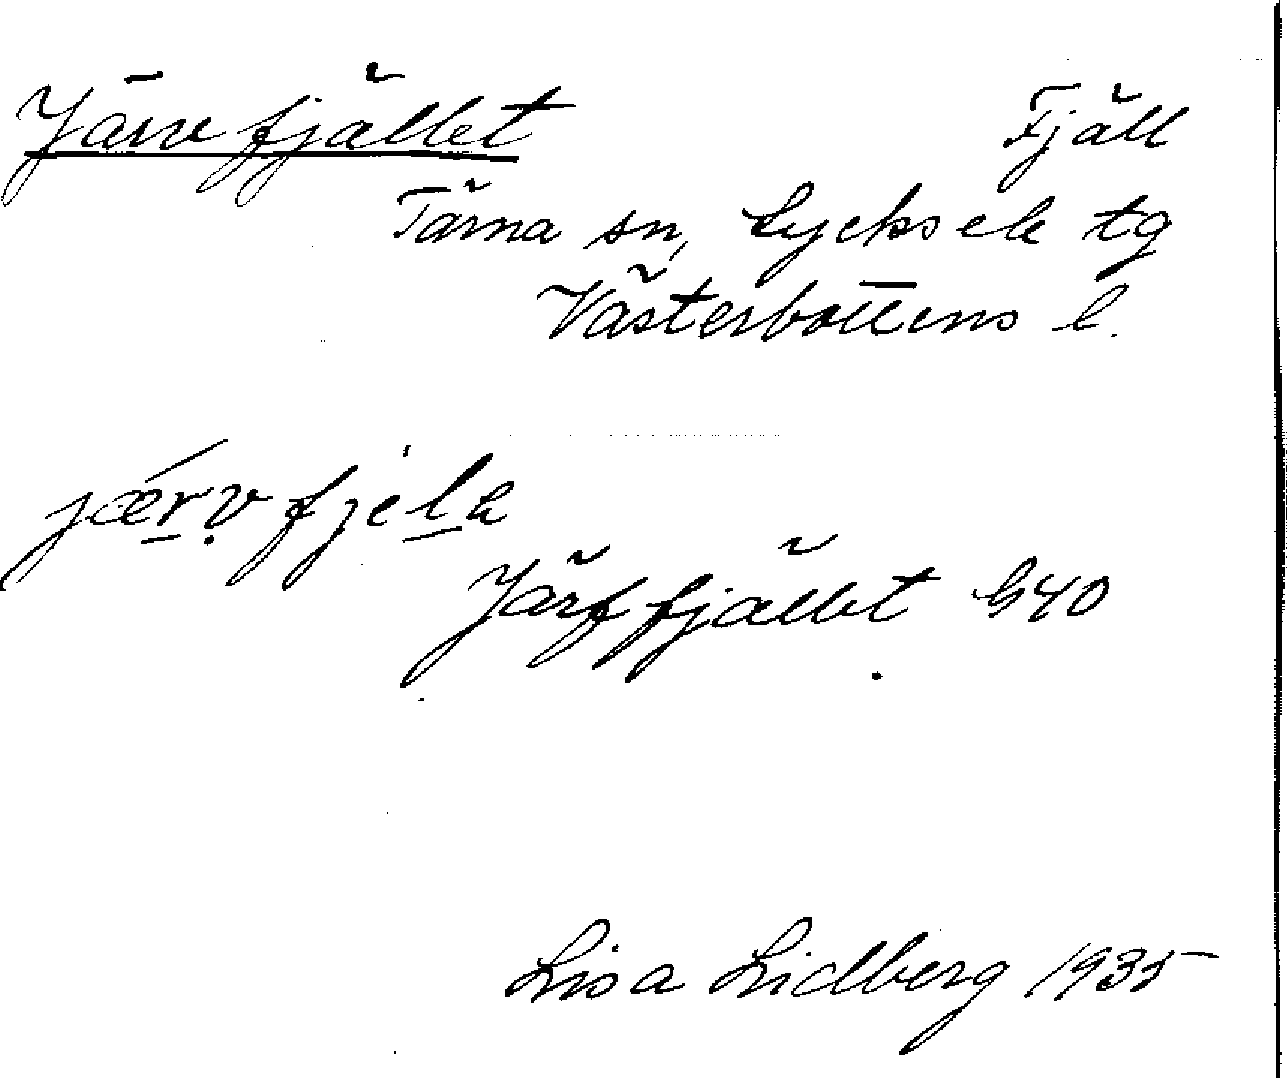 Järvfjället Fjäll
Tärna sn, Lycksele tg
Västerbottens l.
jærv fjela
Järffjället G40
Lisa Lidberg 1935